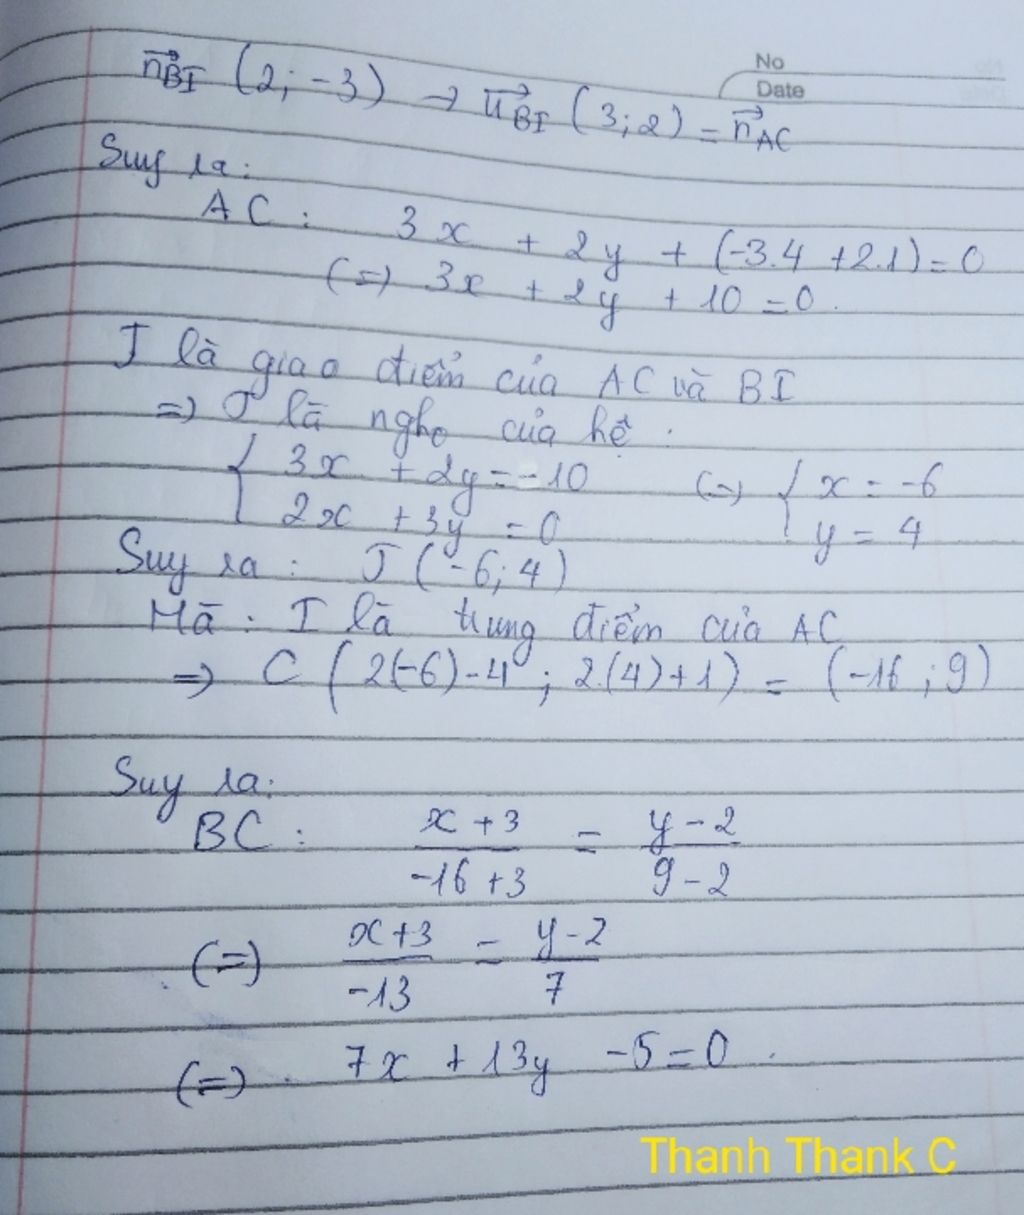 No
Date
n⃗BI (2; -3) → u⃗BI (3; 2) = n⃗AC
Suy ra:
AC : 3x + 2y + (-3.4 + 2.1) = 0
(=) 3x + 2y + 10 = 0.
I là giao điểm của AC và BI
=) J là nghọ của hệ.
{ 3x + 2y = -10 (=) { x = -6
2x + 3y = 0 y = 4
Suy ra : J (-6; 4)
Mà : I là trung điểm của AC
=> C ( 2(-6)-4 ; 2.(4)+1) = (-16 ; 9)
Suy ra:
BC : x + 3 / -16 + 3 = y - 2 / 9 - 2
(=) x + 3 / -13 = y - 2 / 7
(=) 7x + 13y - 5 = 0 .
Thanh Thank C